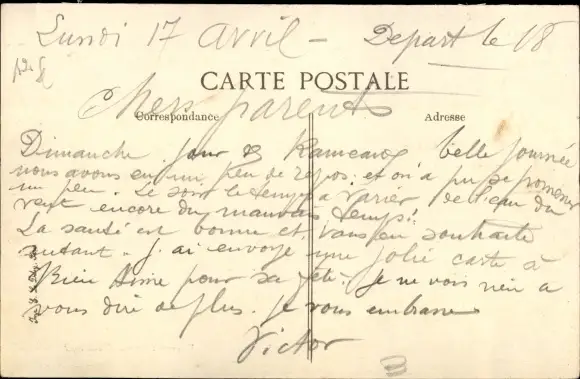 Lundi 17 Avril - Départ le 18
CARTE POSTALE
Chers parents
Correspondance
Adresse
Dimanche jour des Rameaux belle journée
nous avons eu un peu de repos et on a pu se promener
un peu. Le soir le temps a varier de l'eau du
vent encore du mauvais temps!
La santé est bonne et vous en souhaite
autant. j'ai envoyé une jolie carte à
pour sa fête. je ne vois rien a
vous dire de plus. je vous embrasse
Victor